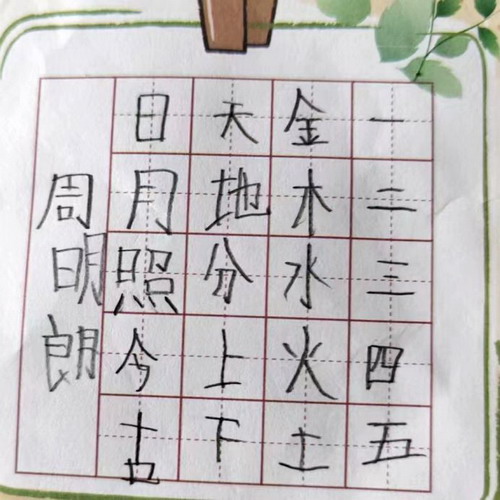 一二三四五
金木水火土
天地分上下
日月照今古
周明朗